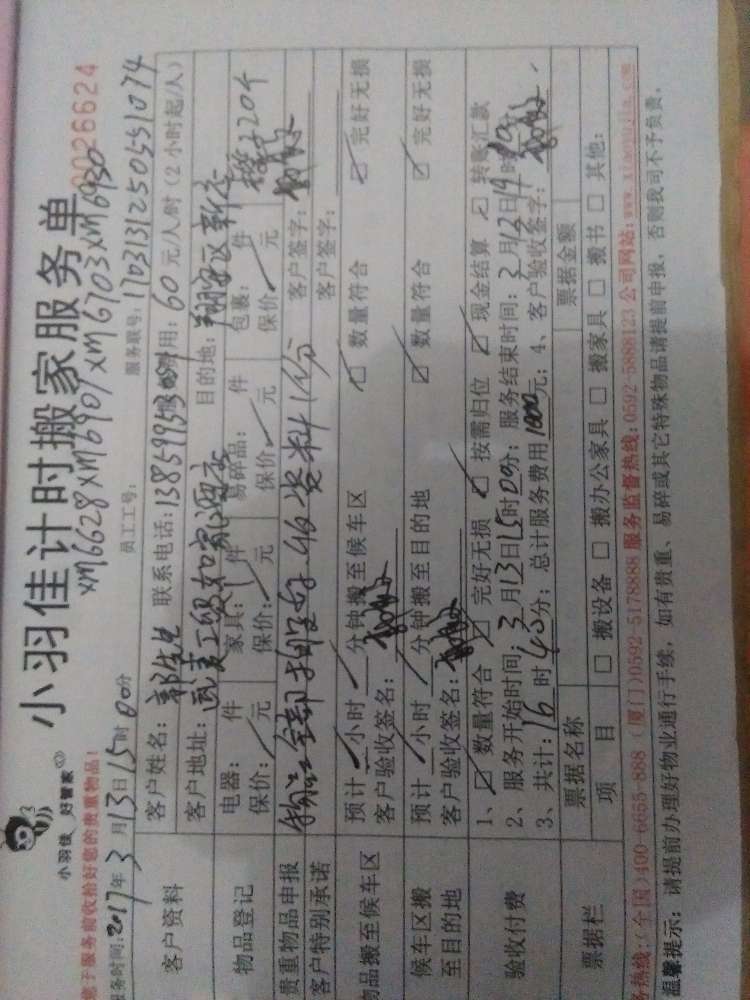 小羽佳 好管家
小羽佳计时搬家服务单
0026624
您于服务前收拾好您的贵重物品!
xm6628 xm6907 xm6703 xm6930
服务时间:2017年3月13日15时00分 员工工号: 服务联号:1703131250551074
客户资料
客户姓名: 联系电话: 费用:60元/人/时(2小时起/人)
客户地址: 目的地:翔安区新店
物品登记
电器: 件 家具: 件 易碎品: 件 包裹: 件
保价: 元 保价: 元 保价: 元 保价: 元
贵重物品申报 客户签字:
客户特别承诺 客户签字:
物品搬至候车区
预计 小时 分钟搬至候车区 ☑数量符合 ☑完好无损
客户验收签名:
候车区搬至目的地
预计 小时 分钟搬至目的地 ☑数量符合 ☑完好无损
客户验收签名:
验收付费
1、☑数量符合 ☑完好无损 ☑按需归位 ☑现金结算 ☑转账汇款
2、服务开始时间:3月13日15时00分;服务结束时间:3月12日19时
3、共计:16时40分;总计服务费用1000元;4、客户验收签字:
票据栏
票据名称 票据金额
项目 □搬设备 □搬办公家具 □搬家具 □搬书 □其他:
务热线:(全国)400-6655-888 (厦门)0592-5178888 服务监督热线:0592-5888123 公司网站:www.xiaoyujia.com
温馨提示:请提前办理好物业通行手续,如有贵重、易碎或其它特殊物品请提前申报,否则我司不予负责。